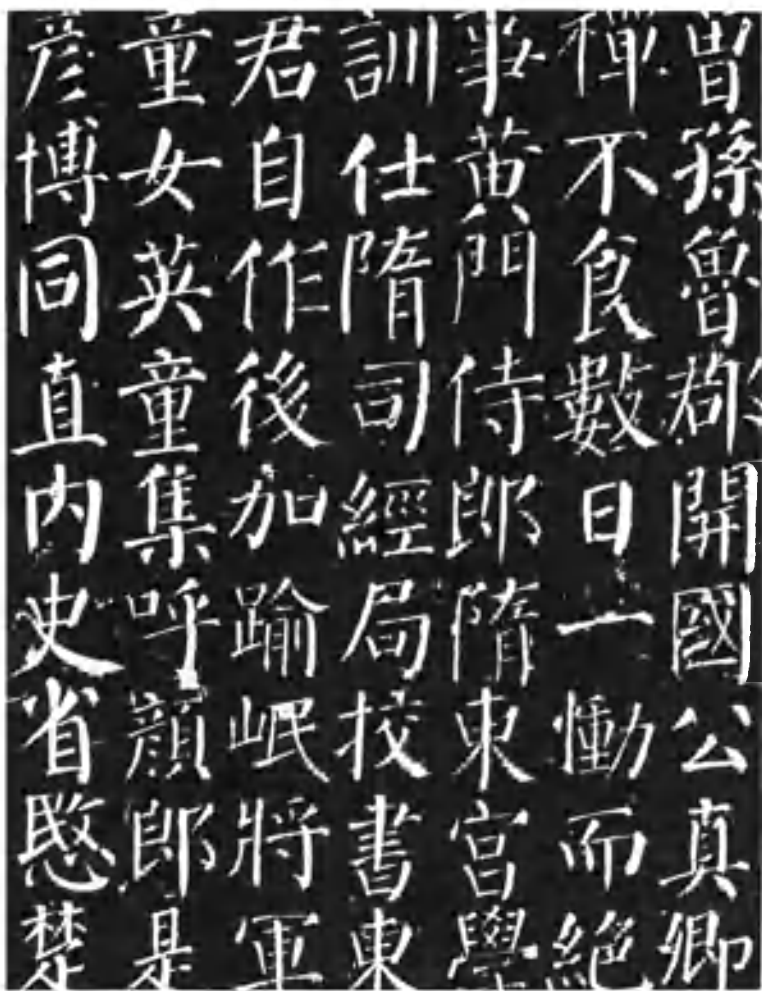 曾孫魯郡開國公真卿
禪不食數日一慟而絕
事黃門侍郎隋東宮學
訓仕隋司經局校書東
君自作後加踰岷將軍
童女英童集呼顏郎是
彥博同直內史省愍楚